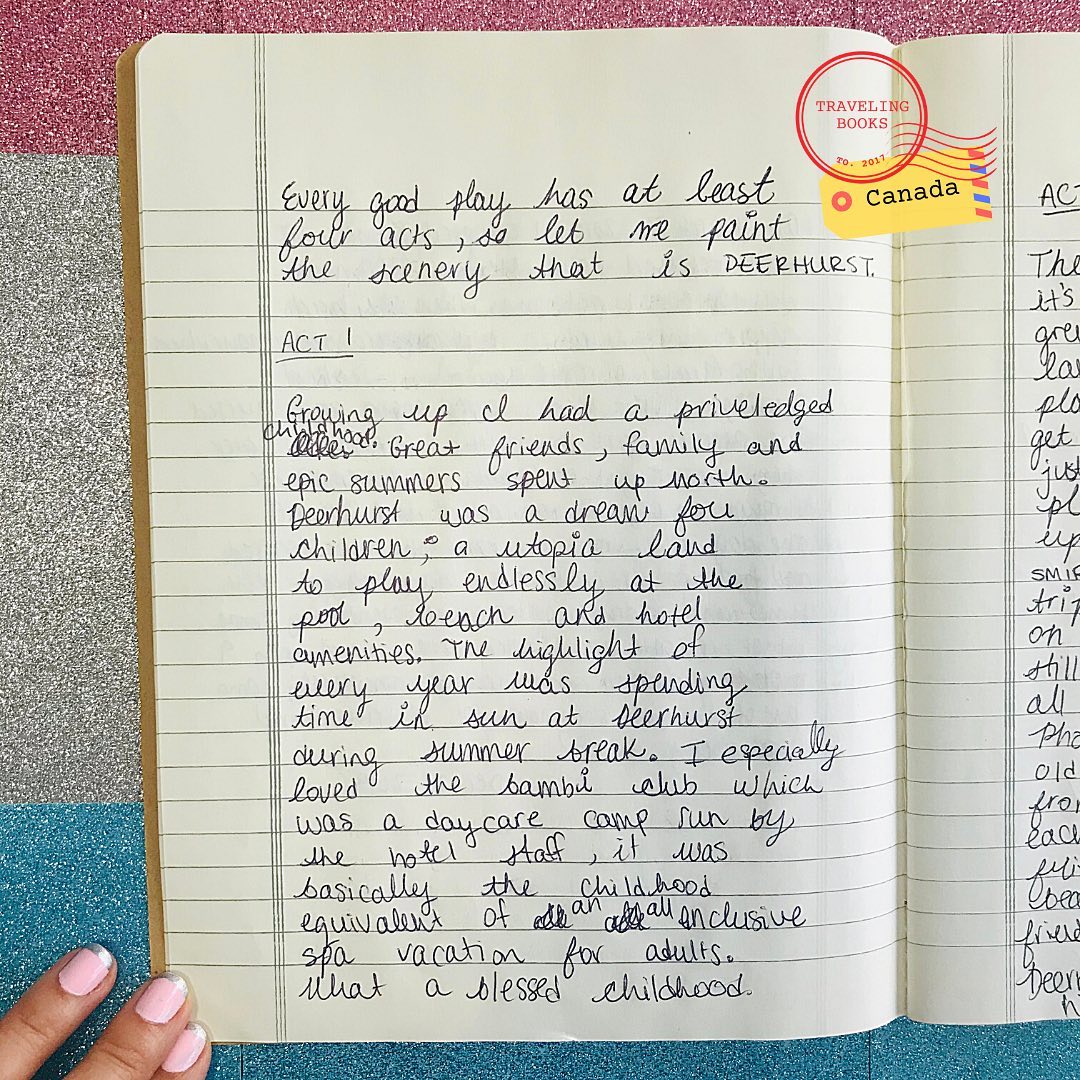 TRAVELING
BOOKS
TO. 2017
Canada
Every good play has at least
four acts, so let me paint
the scenery that is DEERHURST.
ACT 1
Growing up I had a priveledged
childhood. Great friends, family and
epic summers spent up north.
Deerhurst was a dream for
children; a utopia land
to play endlessly at the
pool, beach and hotel
amenities. The highlight of
every year was spending
time in sun at Deerhurst
during summer break. I especially
loved the bambi club which
was a daycare camp run by
the hotel staff, it was
basically the childhood
equivalent of an all inclusive
spa vacation for adults.
What a blessed childhood.
ACT
The
it's
grea
pla
get
just
pl
up
SMIF
trip
on
still
all
Pho
old
from
each
bea
friend
Deer